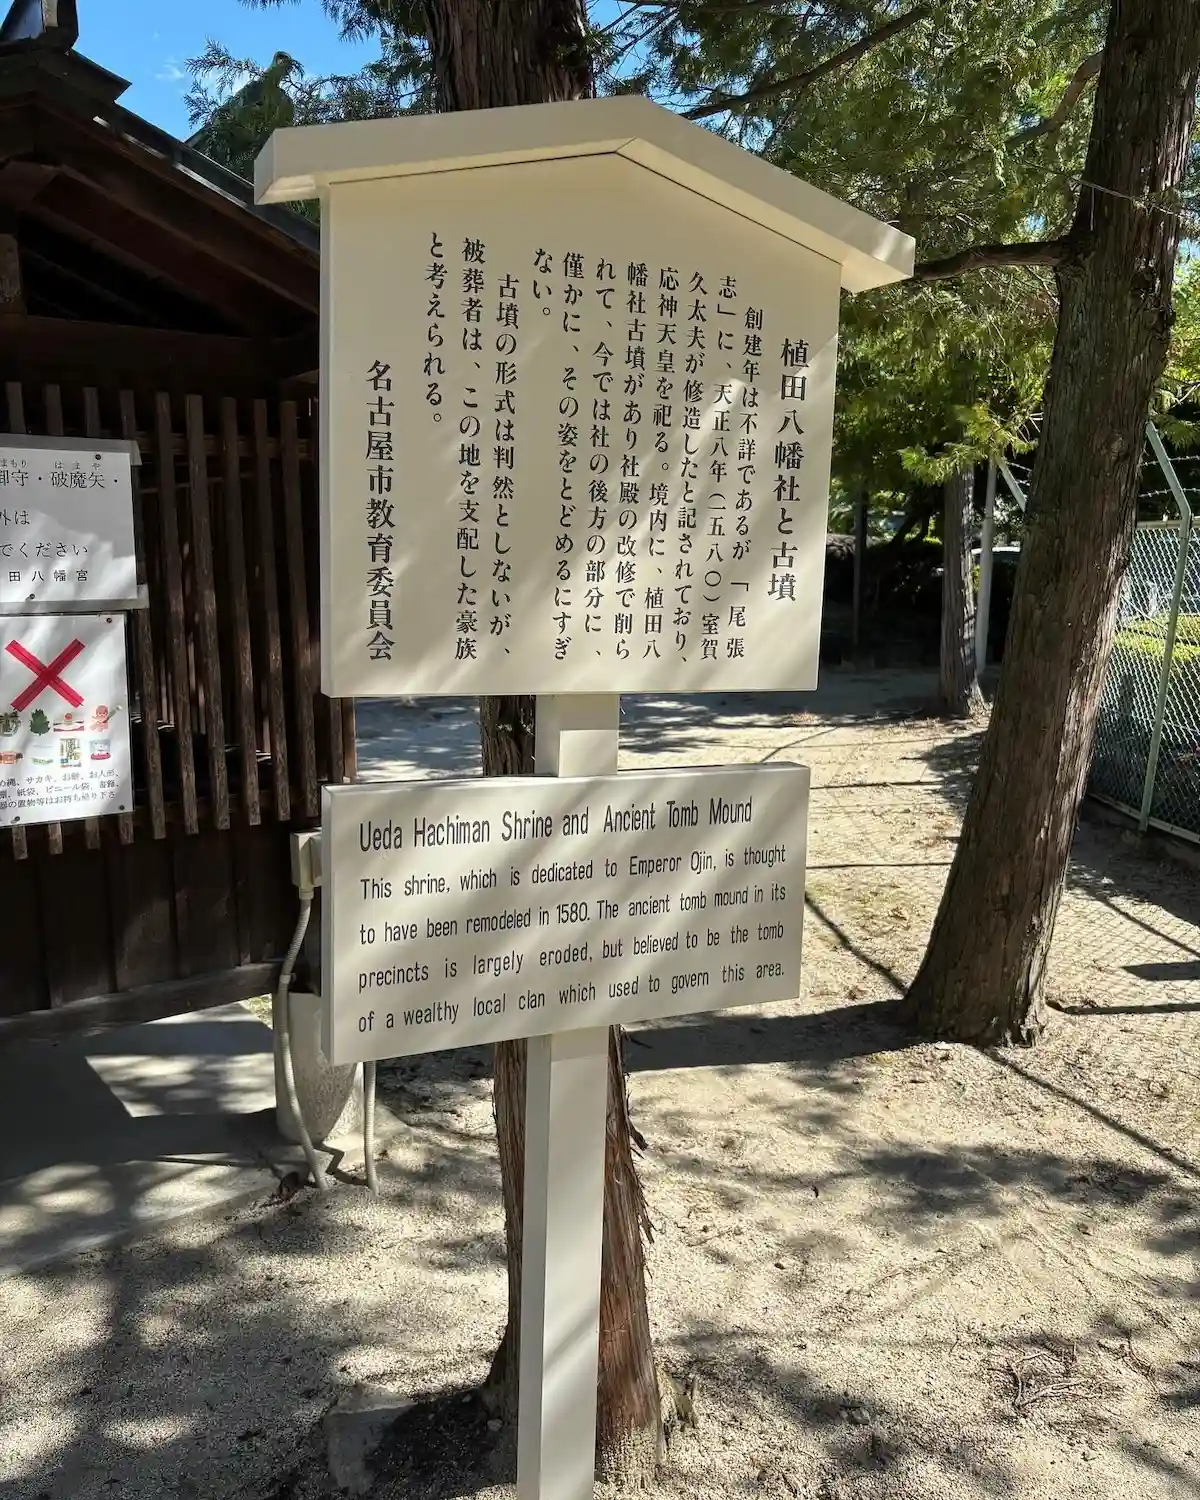 植田八幡社と古墳
創建年は不詳であるが「尾張
志」に、天正八年(一五八〇)室賀
久太夫が修造したと記されており、
応神天皇を祀る。境内に、植田八
幡社古墳があり社殿の改修で削ら
れて、今では社の後方の部分に、
僅かに、その姿をとどめるにすぎ
ない。
古墳の形式は判然としないが、
被葬者は、この地を支配した豪族
と考えられる。
名古屋市教育委員会
Ueda Hachiman Shrine and Ancient Tomb Mound
This shrine, which is dedicated to Emperor Ojin, is thought
to have been remodeled in 1580. The ancient tomb mound in its
precincts is largely eroded, but believed to be the tomb
of a wealthy local clan which used to govern this area.
御守・破魔矢・
外は
でください
田八幡宮
め縄、サカキ、お餅、お人形、
紙袋、ビニール袋、
の置物等はお持ち帰り下さ